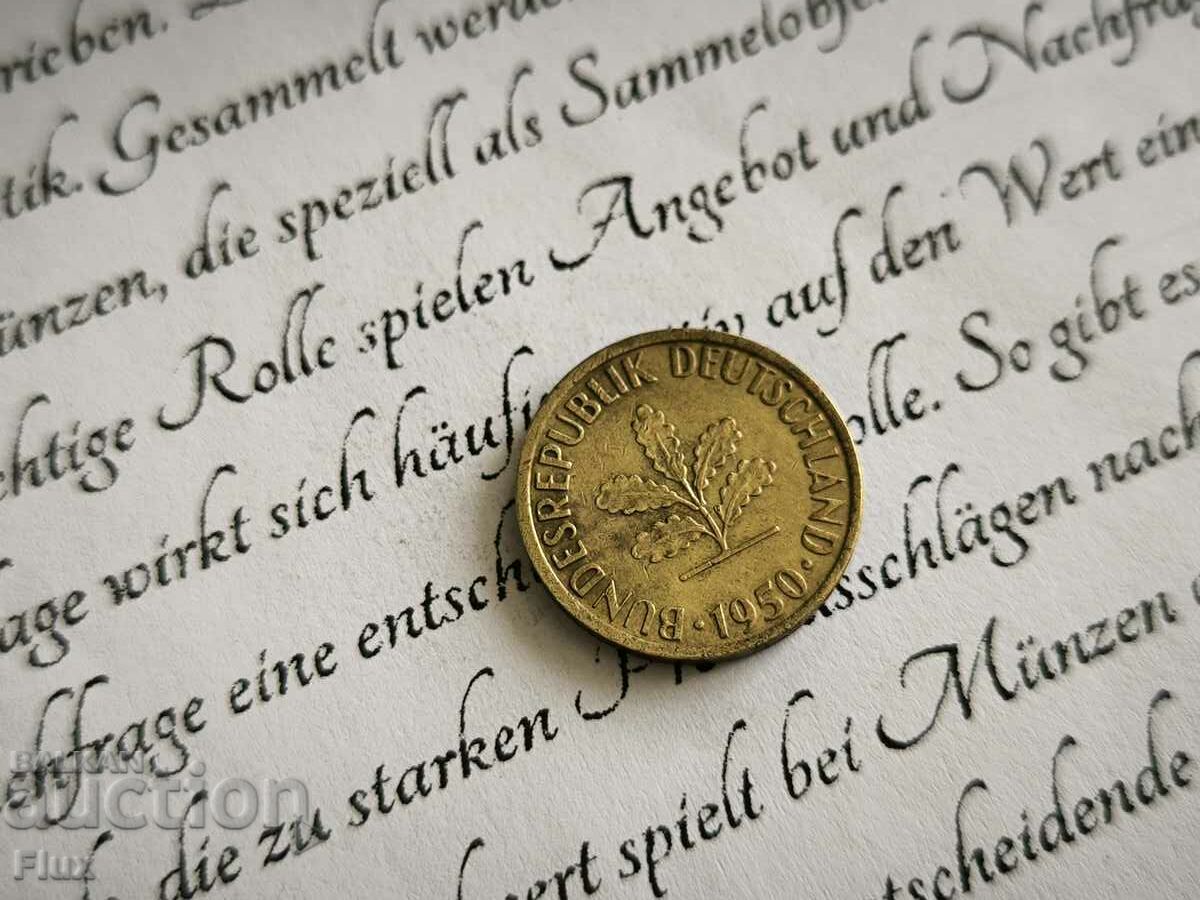 tik. Gesammelt werde
ünzen, die speziell als Sammelobje
chtige Rolle spielen Angebot und Nachfrag
age wirkt sich häufi iv auf den Wert ein
frage eine entsch olle. So gibt es
die zu starken sschlägen nach
wert spielt bei Münzen
tscheidende
BUNDESREPUBLIK DEUTSCHLAND
· 1950 ·
BALKAN
auction
Flux